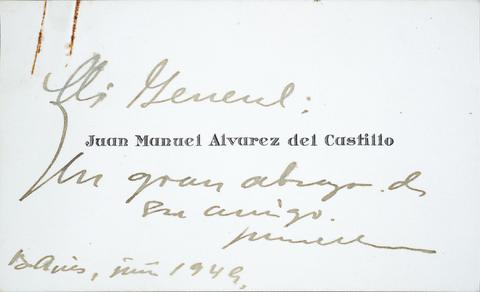 Mi General:
Juan Manuel Alvarez del Castillo
Un gran abrazo de
su amigo.
B Aires, jun 1949.